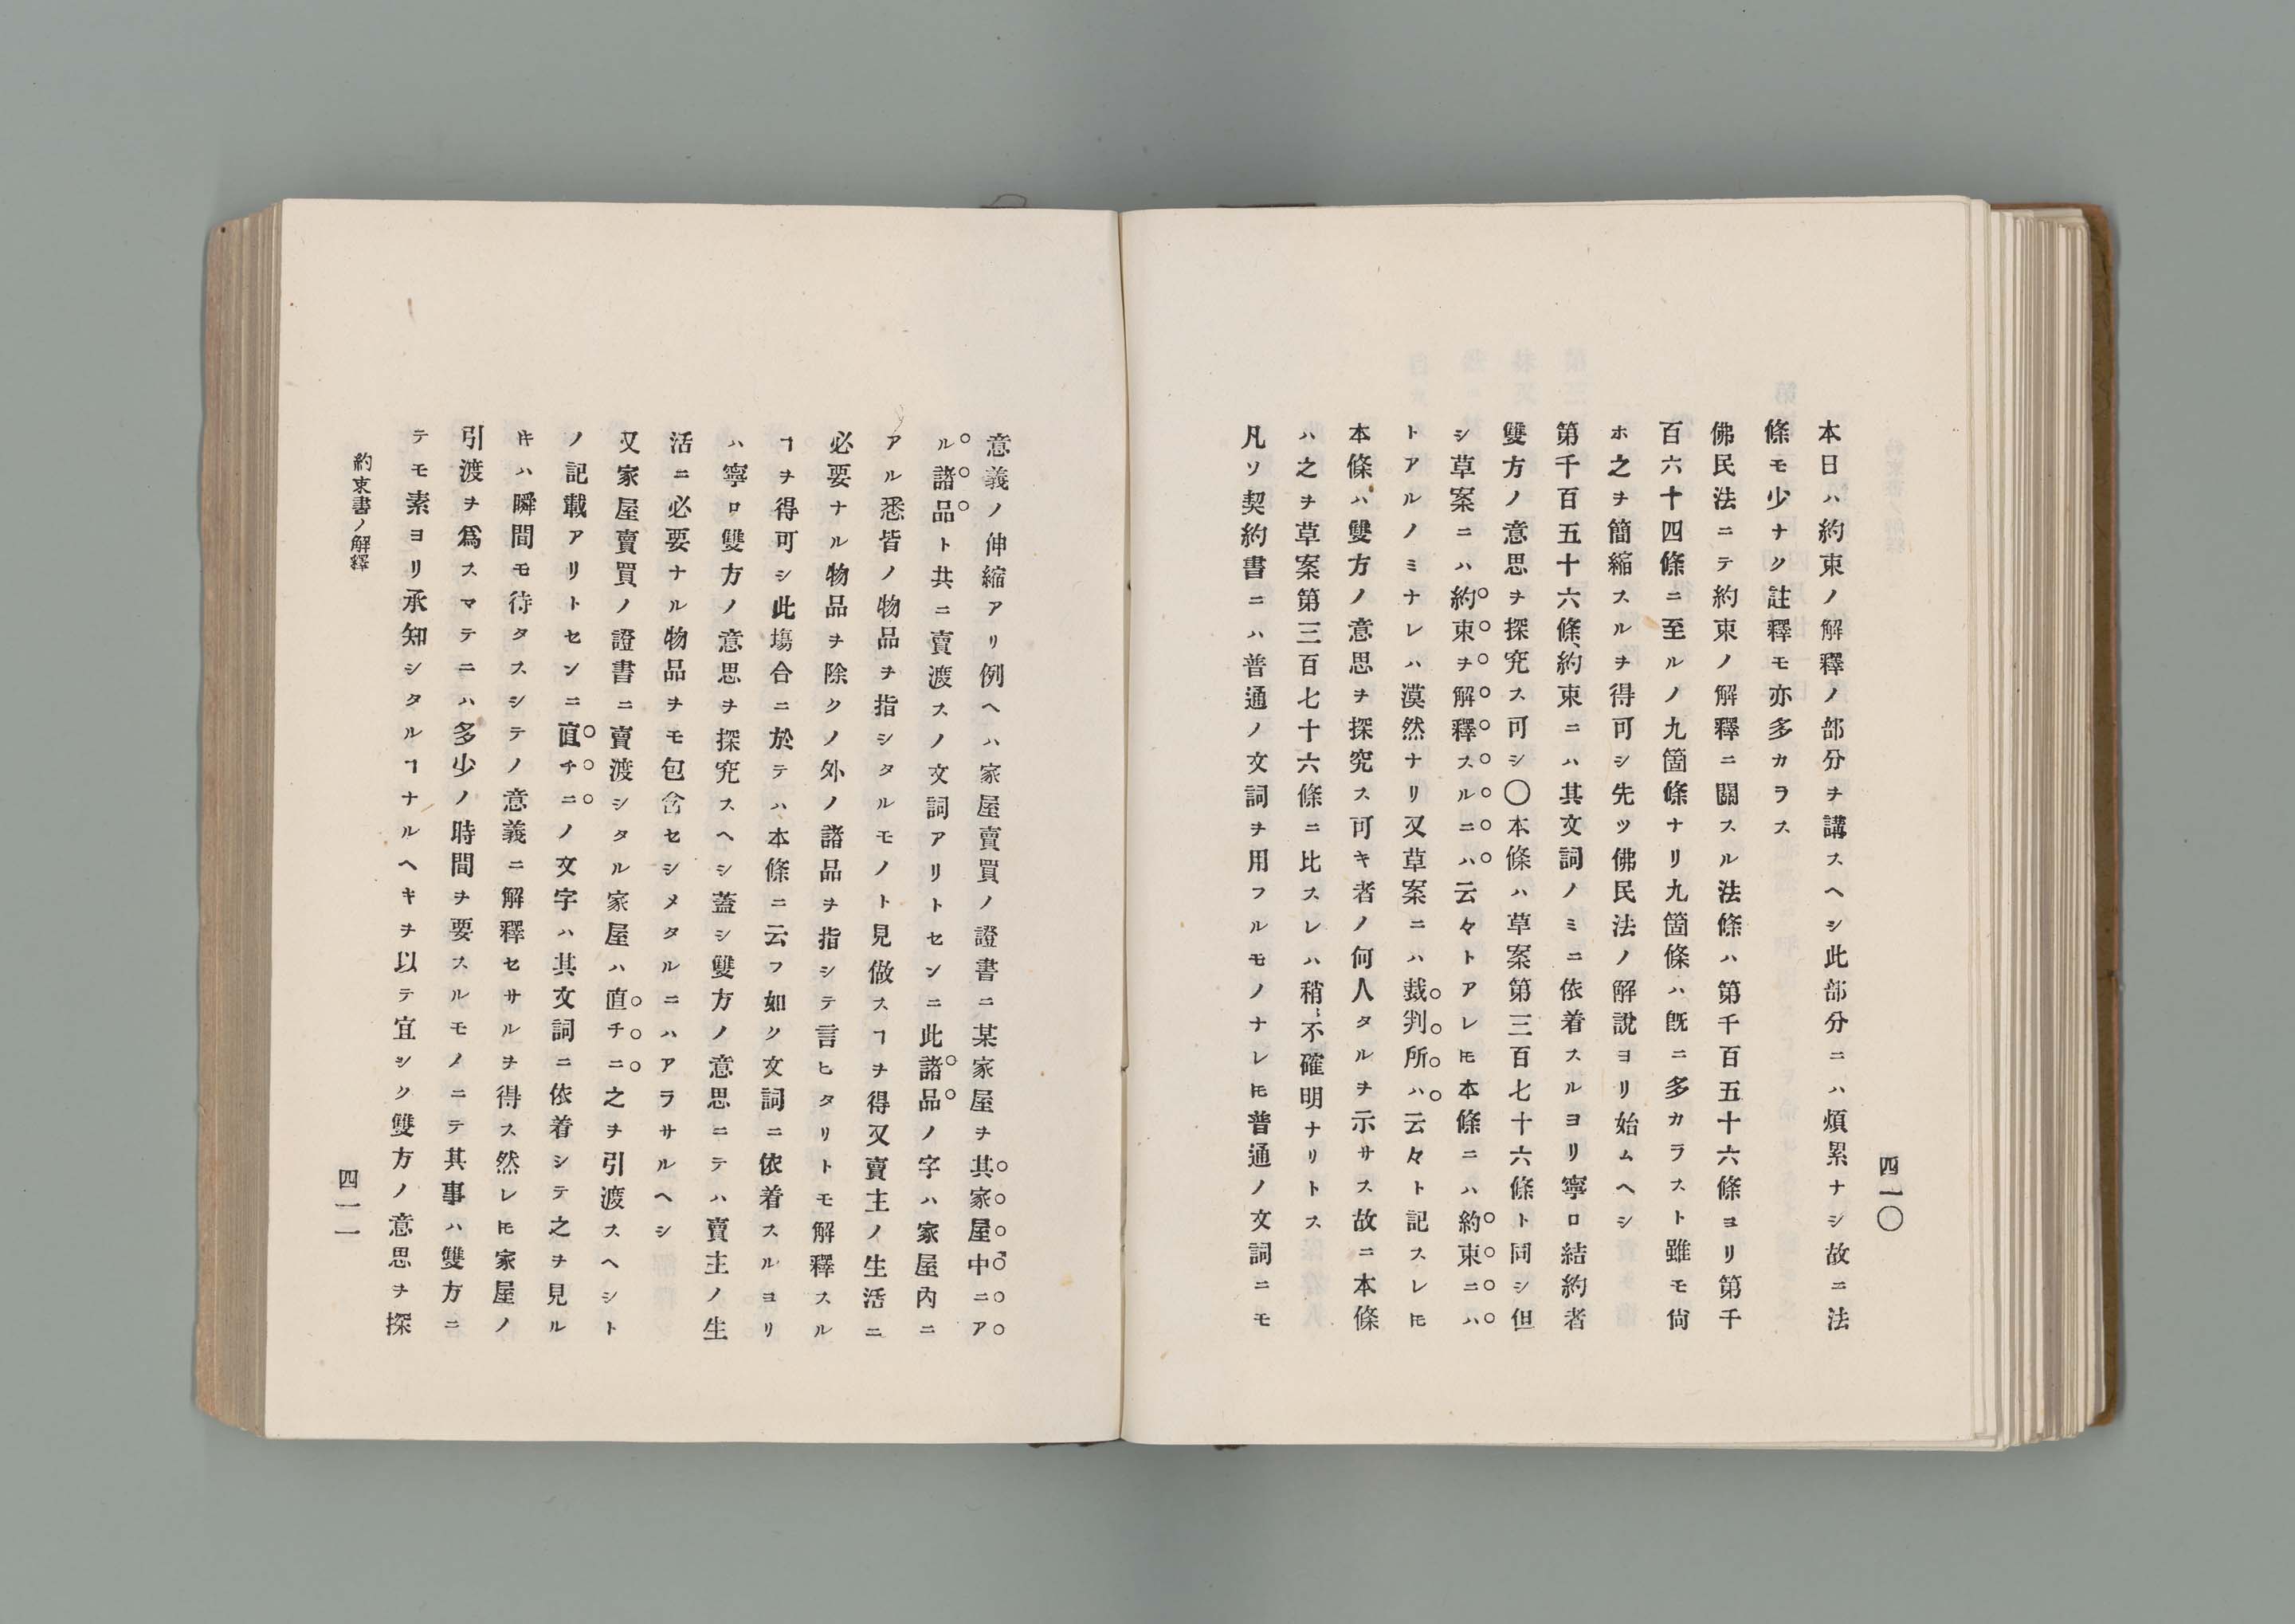 四一〇
本日ハ約束ノ解釋ノ部分ヲ講スヘシ此部分ニハ煩累ナシ故ニ法
條モ少ナク註釋モ亦多カラス
佛民法ニテ約束ノ解釋ニ關スル法條ハ第千百五十六條ヨリ第千
百六十四條ニ至ルノ九箇條ナリ九箇條ハ旣ニ多カラスト雖モ尙
ホ之ヲ簡縮スルヲ得可シ先ツ佛民法ノ解說ヨリ始ムヘシ
第千百五十六條、約束ニハ其文詞ノミニ依着スルヨリ寧ロ結約者
雙方ノ意思ヲ探究ス可シ〇本條ハ草案第三百七十六條ト同シ但
シ草案ニハ約束ヲ解釋スルニハ云々トアレ𪜈本條ニハ約束ニハ
トアルノミナレハ漠然ナリ又草案ニハ裁判所ハ云々ト記スレ𪜈
本條ハ雙方ノ意思ヲ探究ス可キ者ノ何人タルヲ示サス故ニ本條
ハ之ヲ草案第三百七十六條ニ比スレハ稍〻不確明ナリトス
凡ソ契約書ニハ普通ノ文詞ヲ用フルモノナレ𪜈普通ノ文詞ニモ
意義ノ伸縮アリ例ヘハ家屋賣買ノ證書ニ某家屋ヲ其家屋中ニア
ル諸品ト共ニ賣渡スノ文詞アリトセンニ此諸品ノ字ハ家屋內ニ
アル悉皆ノ物品ヲ指シタルモノト見做スヿヲ得又賣主ノ生活ニ
必要ナル物品ヲ除クノ外ノ諸品ヲ指シテ言ヒタリトモ解釋スル
ヿヲ得可シ此塲合ニ於テハ本條ニ云フ如ク文詞ニ依着スルヨリ
ハ寧ロ雙方ノ意思ヲ探究スヘシ蓋シ雙方ノ意思ニテハ賣主ノ生
活ニ必要ナル物品ヲモ包含セシメタルニハアラサルヘシ
又家屋賣買ノ證書ニ賣渡シタル家屋ハ直チニ之ヲ引渡スヘシト
ノ記載アリトセンニ直チニノ文字ハ其文詞ニ依着シテ之ヲ見ル
𪜈ハ瞬間モ待タスシテノ意義ニ解釋セサルヲ得ス然レ𪜈家屋ノ
引渡ヲ爲スマテニハ多少ノ時間ヲ要スルモノニテ其事ハ雙方ニ
テモ素ヨリ承知シタルヿナルヘキヲ以テ宜シク雙方ノ意思ヲ探
約束書ノ解釋
四一一